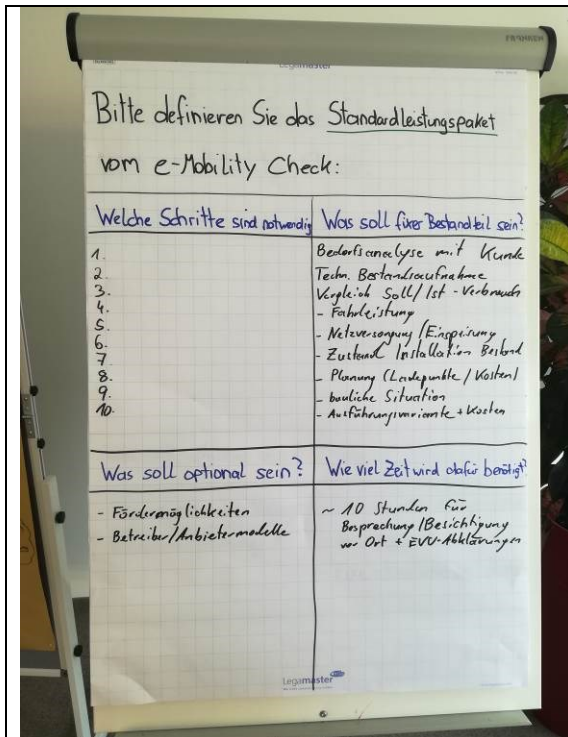 FRANKEN
Legamaster
Bitte definieren Sie das Standardleistungspaket
vom e-Mobility Check:
Welche Schritte sind notwendig
1.
2
3.
4.
5.
6.
7
8.
9.
10.
Was soll fixer Bestandteil sein?
Bedarfsanalyse mit Kunde
Techn. Bestandsaufnahme
Vergleich Soll/Ist - Verbrauch
- Fahrleistung
- Netzversorgung/Einspeisung
- Zustand Installation Bestand
- Planung (Ladepunkte/Kosten)
- bauliche Situation
- Ausführungsvariante + Kosten
Was soll optional sein?
- Fördermöglichkeiten
- Betreiber/Anbietermodelle
Wie viel Zeit wird dafür benötigt?
~ 10 Stunden für
Besprechung/Besichtigung
vor Ort + EVU-Abklärungen
Legamaster